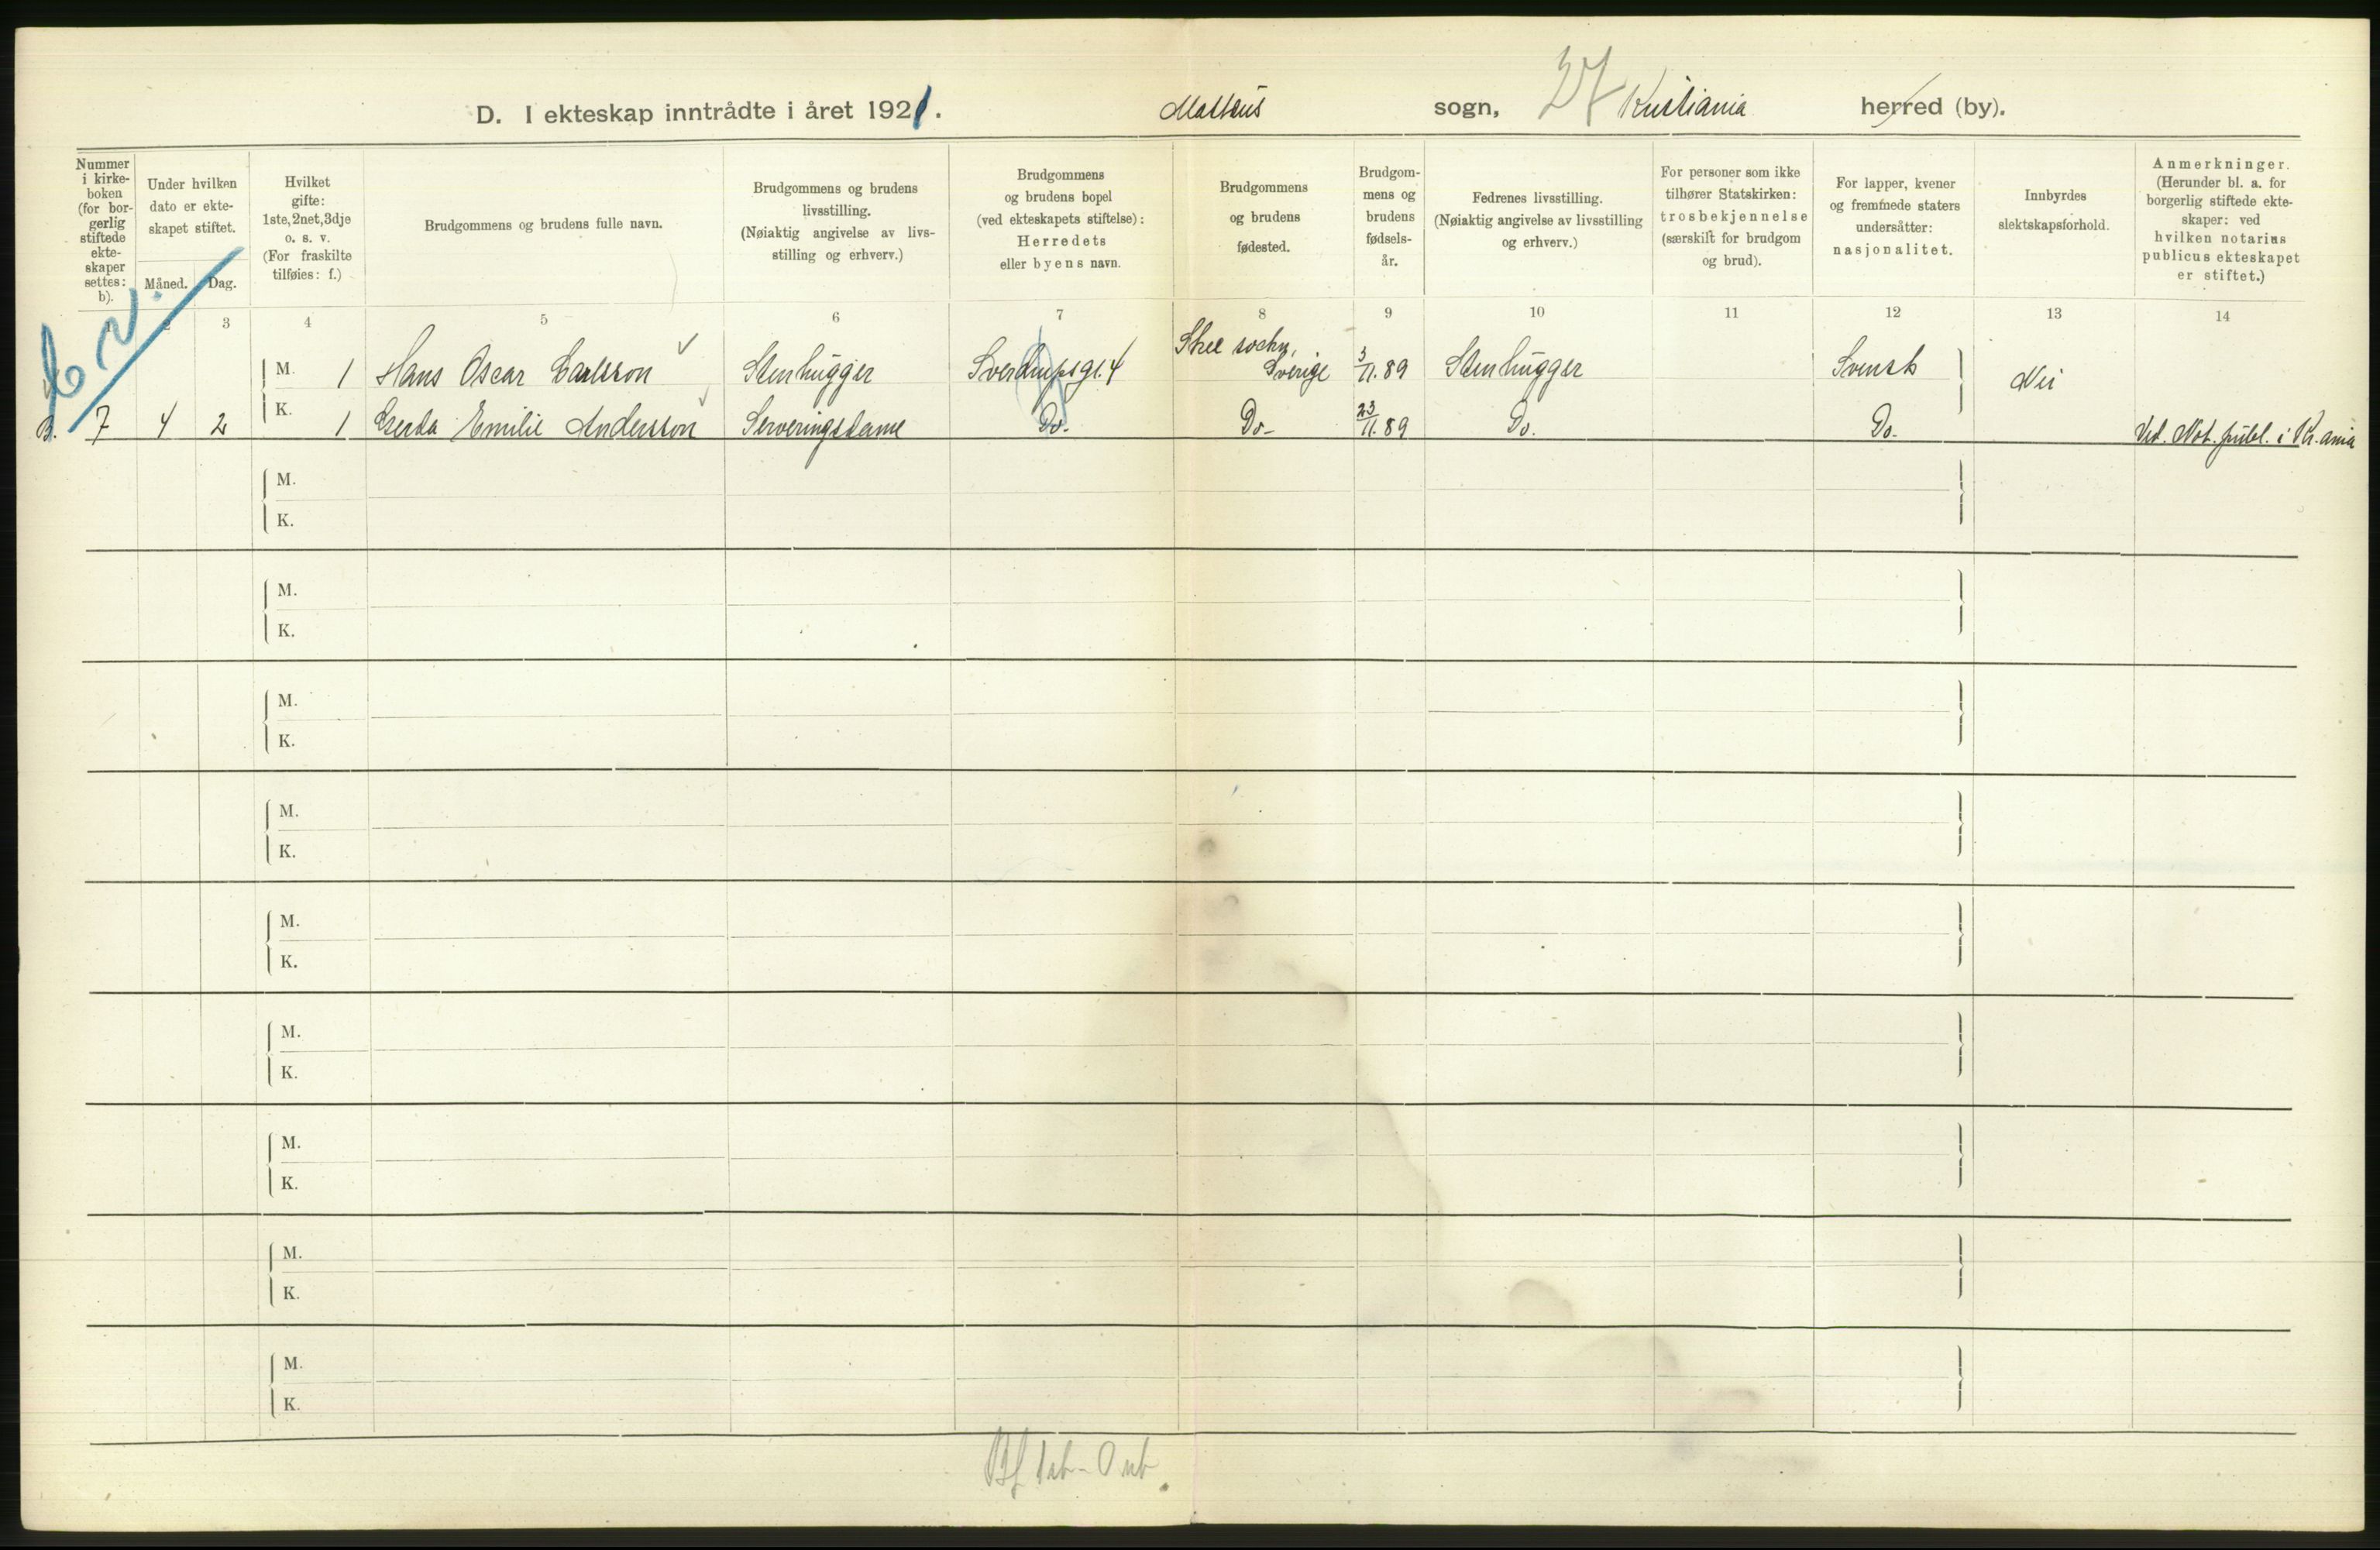 D. I ekteskap inntrådte i året 1921. Matteus sogn, 27 Kristiania herred (by).
Nummer i kirke-boken (for bor-gerlig stiftede ekte-skaper settes: b).
Under hvilken dato er ekte-skapet stiftet.
Måned. Dag.
Hvilket gifte: 1ste, 2net, 3dje o. s. v. (For fraskilte tilføies: f.)
Brudgommens og brudens fulle navn.
Brudgommens og brudens livsstilling. (Nøiaktig angivelse av livs-stilling og erhverv.)
Brudgommens og brudens bopel (ved ekteskapets stiftelse): Herredets eller byens navn.
Brudgommens og brudens fødested.
Brudgom-mens og brudens fødsels-år.
Fedrenes livsstilling. (Nøiaktig angivelse av livsstilling og erhverv.)
For personer som ikke tilhører Statskirken: trosbekjennelse (særskilt for brudgom og brud).
For lapper, kvener og fremmede staters undersåtter: nasjonalitet.
Innbyrdes slektskapsforhold.
Anmerkninger. (Herunder bl. a. for borgerlig stiftede ekte-skaper: ved hvilken notarius publicus ekteskapet er stiftet.)
1 2 3 4 5 6 7 8 9 10 11 12 13 14
M. 1 Hans Oscar Carlsson Stenhugger Sverdrupsgt. 4 Skee sochn, Sverige 3/11.89 Stenhugger Svensk Nei
B. 7 4 2 K. 1 Gerda Emilie Andersson Serveringsdame Do. Do- 23/11.89 Do. Do. Ved. Not. publ. i Kr.ania
M.
K.
M.
K.
M.
K.
M.
K.
M.
K.
M.
K.
M.
K.
M.
K.
M.
K.